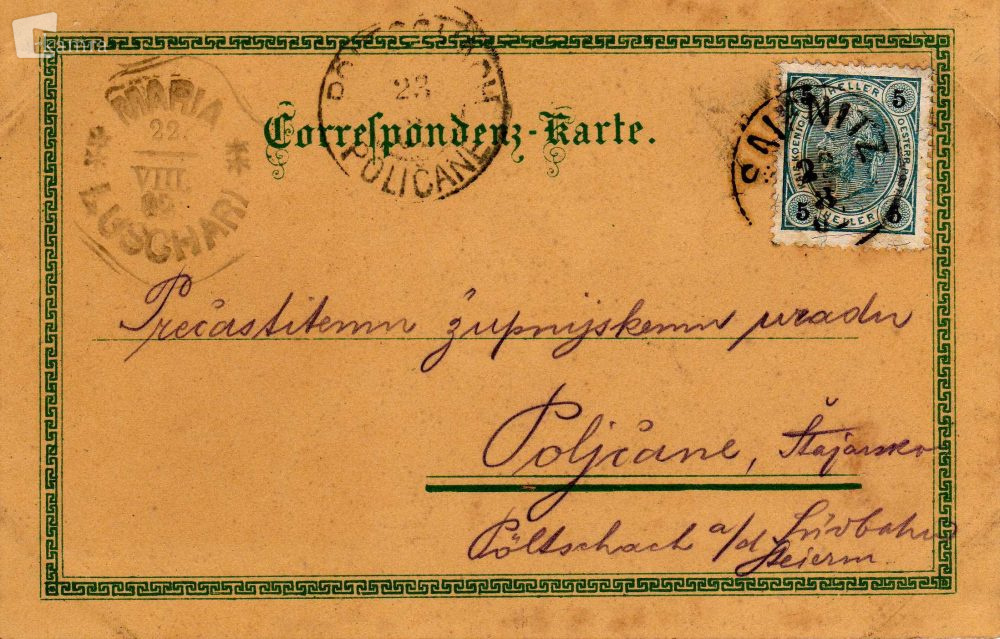 MARIA
22.
VIII.
LUSCHARI
23
POLICANE
Correspondenz-Karte.
SAIFNITZ
22
8
5 HELLER 5
5 HELLER 5
Prečastitemu župnijskemu uradu
Poljčane, Štajarsko
Pöltschach a/d Südbahn
Steierm